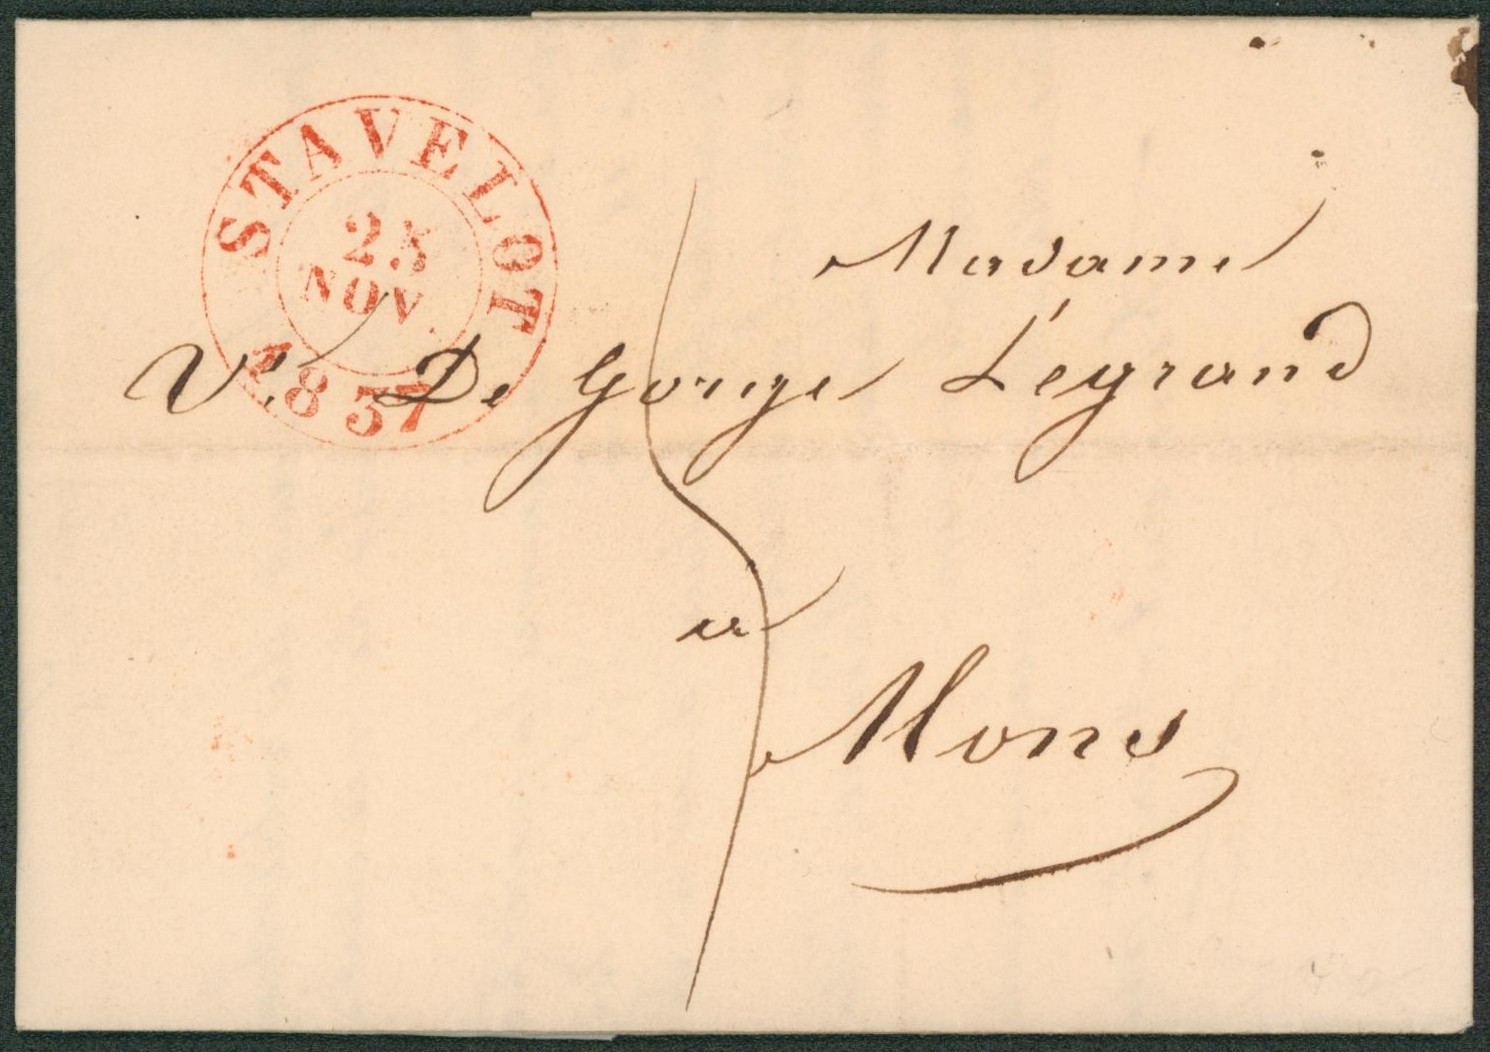 STAVELOT
25
NOV.
1837
Madame
Ve. De Gorge Legrand
a
Mons